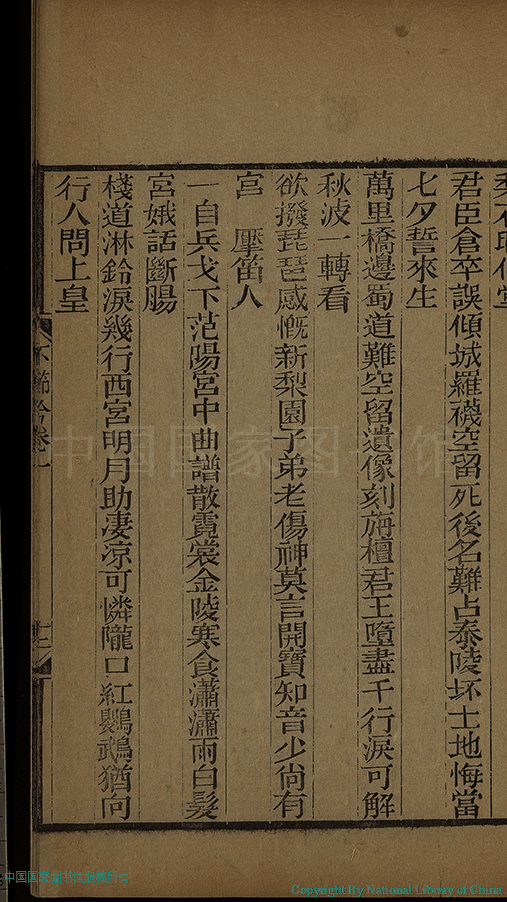 君臣倉卒誤傾城羅襪空留死後名難占泰陵坏土地悔當
七夕誓來生
萬里橋邊蜀道難空留遺像刻旃檀君王墮盡千行淚可解
秋波一轉看
欲撥琵琶感慨新梨園子弟老傷神莫言開寶知音少尙有
宮 擪笛人
一自兵戈下范陽宮中曲譜散霓裳金陵寒食瀟瀟雨白髮
宮娥話斷腸
棧道淋鈴淚幾行西宮明月助凄凉可憐隴口紅鸚鵡猶向
行人問上皇
卷一
中国国家图书馆
中国国家图书馆版权所有
Copyright By National Library of China